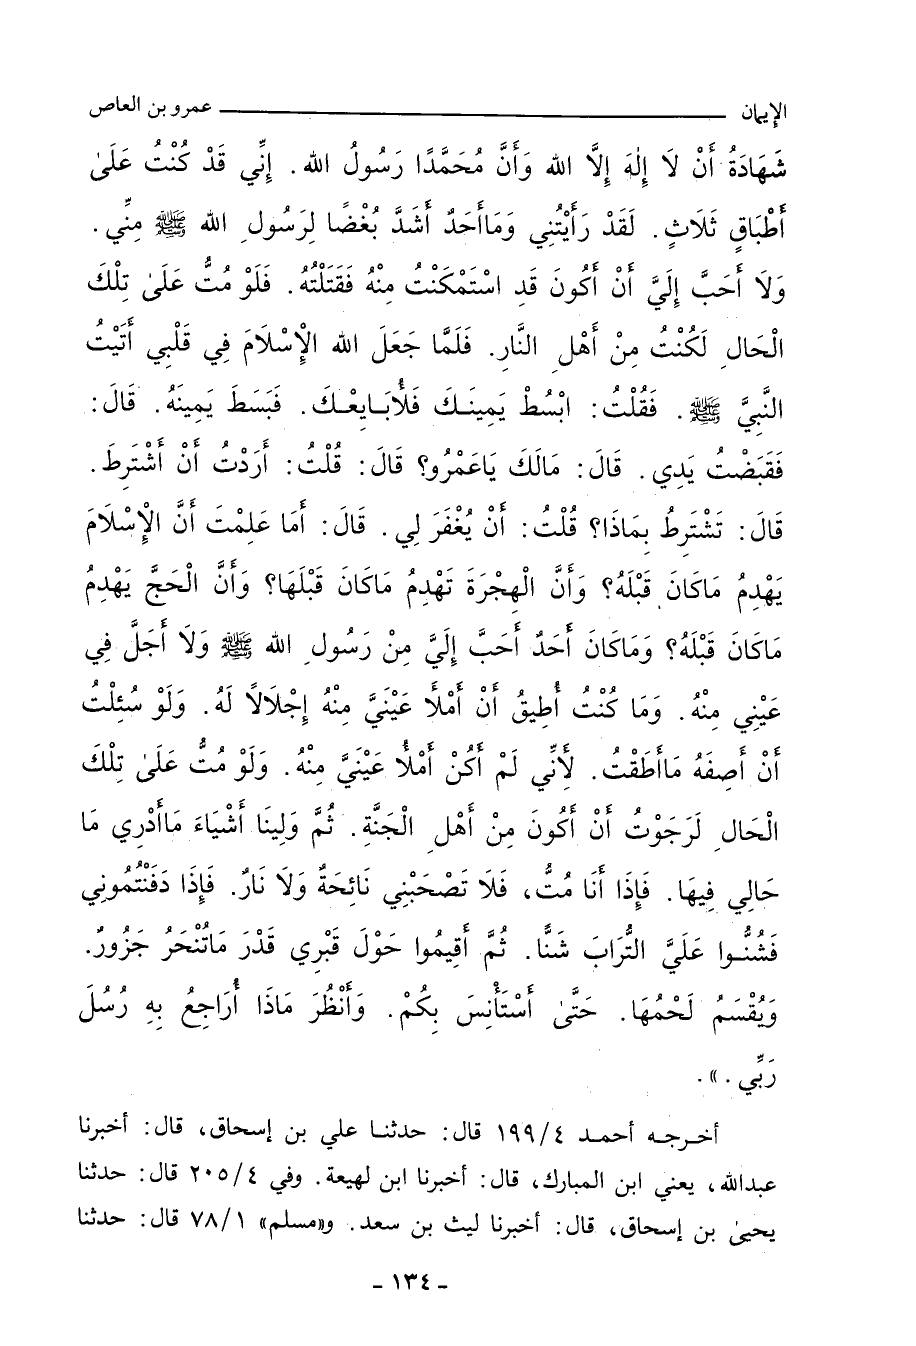 الإيمان ــــــــــــــــ عمرو بن العاص
شَهَادَةُ أَنْ لَا إِلٰهَ إِلَّا الله وَأَنَّ مُحَمَّدًا رَسُولُ الله. إِنِّي قَدْ كُنْتُ عَلَىٰ
أَطْبَاقٍ ثَلَاثٍ. لَقَدْ رَأَيْتُنِي وَمَاأَحَدٌ أَشَدَّ بُغْضًا لِرَسُولِ الله ﷺ مِنِّي.
وَلَا أَحَبَّ إِلَيَّ أَنْ أَكُونَ قَدِ اسْتَمْكَنْتُ مِنْهُ فَقَتَلْتُهُ. فَلَوْ مُتُّ عَلَىٰ تِلْكَ
الْحَالِ لَكُنْتُ مِنْ أَهْلِ النَّارِ. فَلَمَّا جَعَلَ الله الْإِسْلَامَ فِي قَلْبِي أَتَيْتُ
النَّبِيَّ ﷺ. فَقُلْتُ: ابْسُطْ يَمِينَكَ فَلْأُبَايِعْكَ. فَبَسَطَ يَمِينَهُ. قَالَ:
فَقَبَضْتُ يَدِي. قَالَ: مَالَكَ يَاعَمْرُو؟ قَالَ: قُلْتُ: أَرَدْتُ أَنْ أَشْتَرِطَ.
قَالَ: تَشْتَرِطُ بِمَاذَا؟ قُلْتُ: أَنْ يُغْفَرَ لِي. قَالَ: أَمَا عَلِمْتَ أَنَّ الْإِسْلَامَ
يَهْدِمُ مَاكَانَ قَبْلَهُ؟ وَأَنَّ الْهِجْرَةَ تَهْدِمُ مَاكَانَ قَبْلَهَا؟ وَأَنَّ الْحَجَّ يَهْدِمُ
مَاكَانَ قَبْلَهُ؟ وَمَاكَانَ أَحَدٌ أَحَبَّ إِلَيَّ مِنْ رَسُولِ الله ﷺ وَلَا أَجَلَّ فِي
عَيْنِي مِنْهُ. وَمَا كُنْتُ أُطِيقُ أَنْ أَمْلَأَ عَيْنَيَّ مِنْهُ إِجْلَالاً لَهُ. وَلَوْ سُئِلْتُ
أَنْ أَصِفَهُ مَاأَطَقْتُ. لِأَنِّي لَمْ أَكُنْ أَمْلَأُ عَيْنَيَّ مِنْهُ. وَلَوْ مُتُّ عَلَىٰ تِلْكَ
الْحَالِ لَرَجَوْتُ أَنْ أَكُونَ مِنْ أَهْلِ الْجَنَّةِ. ثُمَّ وَلِينَا أَشْيَاءَ مَاأَدْرِي مَا
حَالِي فِيهَا. فَإِذَا أَنَا مُتُّ، فَلَا تَصْحَبْنِي نَائِحَةٌ وَلَا نَارٌ. فَإِذَا دَفَنْتُمُونِي
فَشُنُّوا عَلَيَّ التُّرَابَ شَنًّا. ثُمَّ أَقِيمُوا حَوْلَ قَبْرِي قَدْرَ مَاتُنْحَرُ جَزُورٌ.
وَيُقْسَمُ لَحْمُهَا. حَتَّىٰ أَسْتَأْنِسَ بِكُمْ. وَأَنْظُرَ مَاذَا أُرَاجِعُ بِهِ رُسُلَ
رَبِّي.».
أخرجه أحمد ١٩٩/٤ قال: حدثنا علي بن إسحاق، قال: أخبرنا
عبدالله، يعني ابن المبارك، قال: أخبرنا ابن لهيعة. وفي ٢٠٥/٤ قال: حدثنا
يحيىٰ بن إسحاق، قال: أخبرنا ليث بن سعد. و«مسلم» ٧٨/١ قال: حدثنا
- ١٣٤ -